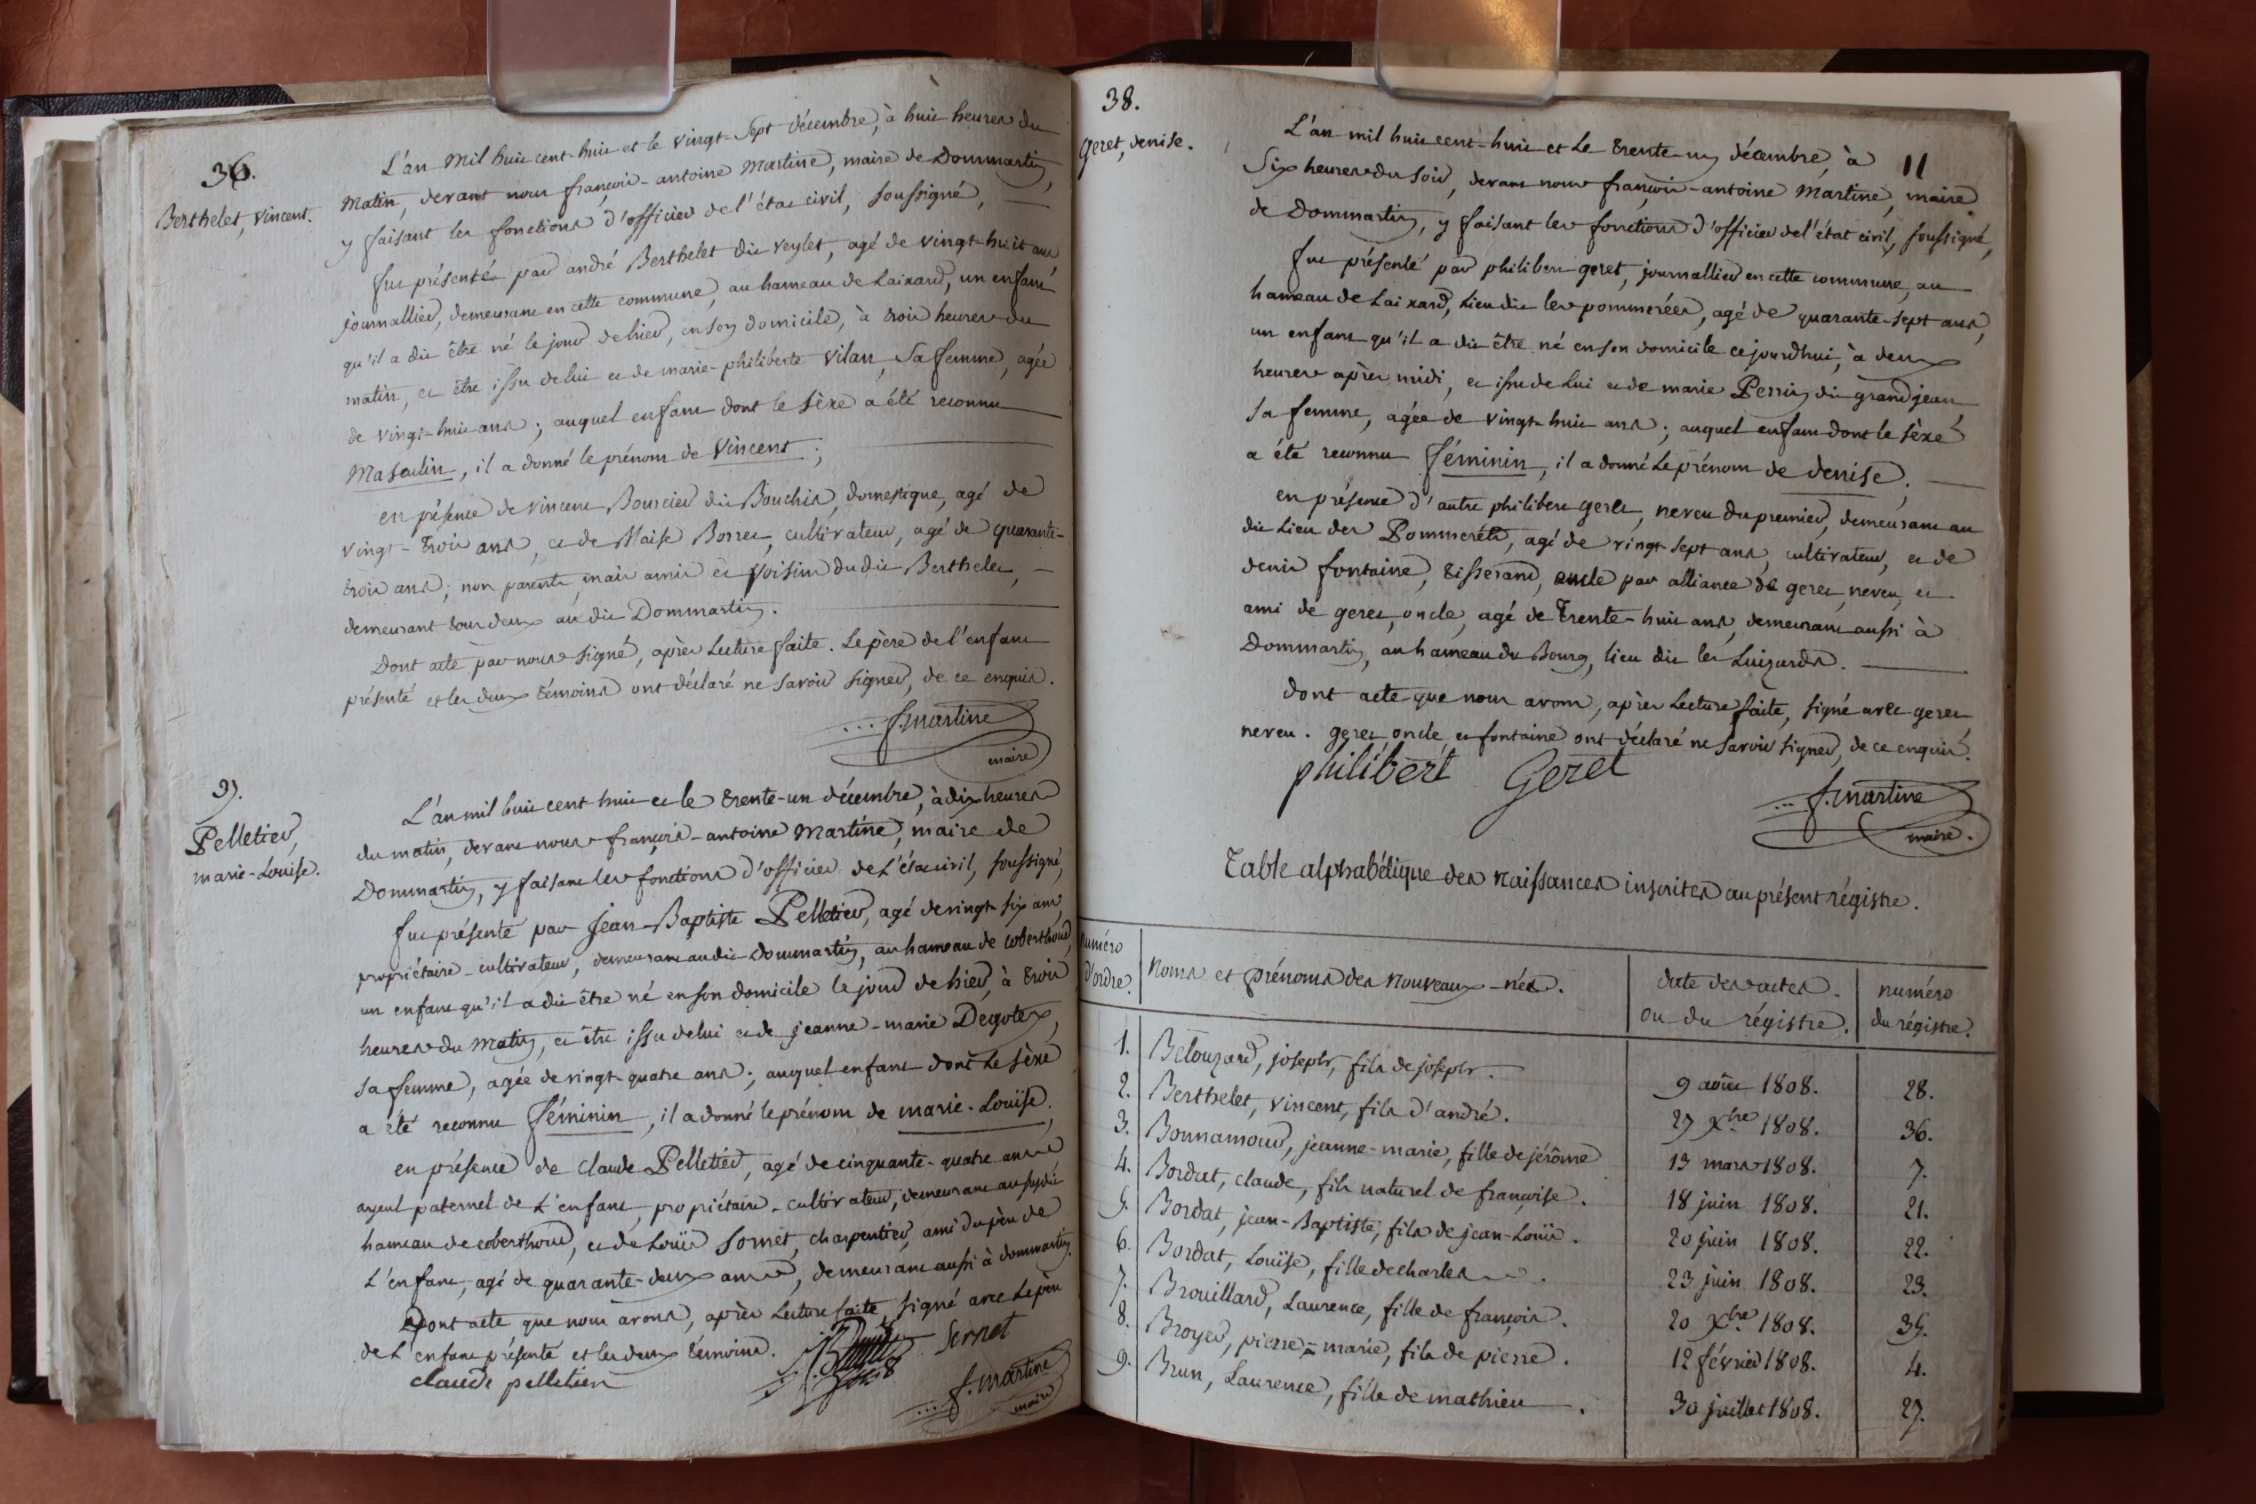 36.
Berthelet, Vincent.
L'an mil huit cent-huit et le vingt-sept décembre, à huit heures du
matin, devant nous françois-antoine Martine, maire de Dommartin,
y faisant les fonctions d'officier de l'état civil, soussigné,
fut présenté par andré Berthelet dit veylet, agé de vingt-huit ans
journallier, demeurant en cette commune, au hameau de Laixard, un enfant
qu'il a dit être né le jour de hier, en son domicile, à trois heures du
matin, et être issu de lui et de marie-philiberte Vilan, sa femme, agée
de vingt-huit ans; auquel enfant dont le sèxe a été reconnu
Masculin, il a donné le prénom de Vincent;
en présence de vincent Bourcier dit Bouchis, domestique, agé de
vingt-trois ans, et de Blaise Borret, cultivateur, agé de quarante-
trois ans; non parents, mais amis et voisins du dit Berthelet,
demeurant tous deux au dit Dommartin.
Dont acte par nous signé, après lecture faite. Le père de l'enfant
présenté et les deux témoins ont déclaré ne savoir signer, de ce enquis.
f. martine
maire
37.
Pelletier,
marie-Louise.
L'an mil huit cent-huit et le trente-un décembre, à dix heures
du matin, devant nous françois-antoine Martine, maire de
Dommartin, y faisant les fonctions d'officier de l'état civil, soussigné,
fut présenté par Jean-Baptiste Pelletier, agé de vingt-six ans,
propriétaire-cultivateur, demeurant au dit Dommartin, au hameau de coberthoud,
un enfant qu'il a dit être né en son domicile le jour de hier, à trois
heures du matin, et être issu de lui et de jeanne-marie Degotex,
sa femme, agée de vingt-quatre ans; auquel enfant dont le sèxe
a été reconnu féminin, il a donné le prénom de marie-Louïse;
en présence de claude Pelletier, agé de cinquante-quatre ans
ayeul paternel de l'enfant, propriétaire-cultivateur, demeurant au susdit
hameau de coberthoud, et de Louïs Sornet, charpentier, ami du père de
l'enfant, agé de quarante-deux ans, demeurant aussi à dommartin.
Dont acte que nous avons, après lecture faite, signé avec le père
de l'enfant présenté et les deux témoins.
Sernet
claude pelletier
f. martine
maire
38.
Geret, denise.
11
L'an mil huit cent-huit et le trente-un décembre, à
six heures du soir, devant nous françois-antoine Martine, maire
de Dommartin, y faisant les fonctions d'officier de l'état civil, soussigné,
fut présenté par philibert geret, journallier en cette commune, au
hameau de Laixard, lieu dit les pommerées, agé de quarante-sept ans,
un enfant qu'il a dit être né en son domicile cejourdhui, à deux
heures après midi, et issu de lui et de marie Perrin dit grandjean
sa femme, agée de vingt-huit ans; auquel enfant dont le sèxe
a été reconnu féminin, il a donné le prénom de denise;
en présence d'autre philibert geret, neveu du premier, demeurant au
dit lieu des Pommerées, agé de vingt-sept ans, cultivateur, et de
denis fontaine, tisserand, oncle par alliance de geret, neveu, et
ami de geret, oncle, agé de trente-huit ans, demeurant aussi à
Dommartin, au hameau du Bourg, lieu dit les Luizards.
dont acte que nous avons, après lecture faite, signé avec geret
neveu. geret oncle et fontaine ont déclaré ne savoir signer, de ce enquis.
philibert Geret
f. martine
maire.
Table alphabétique des naissances inscrites au présent régistre.
numéro d'ordre. noms et prénoms des nouveaux-nés. date des actes ou du régistre. numéro du régistre.
1. Belouzard, joseph, fils de joseph. 9 août 1808. 28.
2. Berthelet, vincent, fils d'andré. 27 Xbre 1808. 36.
3. Bonnamour, jeanne-marie, fille de jérôme 13 mars 1808. 7.
4. Bordat, claude, fils naturel de françoise. 18 juin 1808. 21.
5. Bordat, jean-Baptiste, fils de jean-Louïs. 20 juin 1808. 22.
6. Bordat, Louïse, fille de charles. 23 juin 1808. 23.
7. Brouillard, Laurence, fille de françois. 20 Xbre 1808. 35.
8. Broyer, pierre-marie, fils de pierre. 12 février 1808. 4.
9. Brun, Laurence, fille de mathieu. 30 juillet 1808. 27.